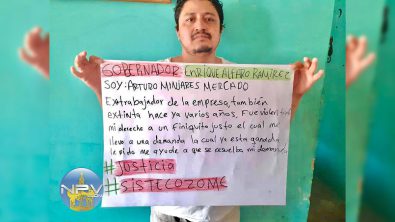 GOBERNADOR: ENRIQUE ALFARO RAMÍREZ
SOY: ARTURO MINJARES MERCADO
Extrabajador de la empresa, también
extinta hace ya varios años. Fue violentado
mi derecho a un Finiquito justo el cual me
llevo a una demanda la cual ya esta ganada
le pido me ayude a que se resuelva mi demanda
#JUSTICIA
#SISTECOZOME
NPV